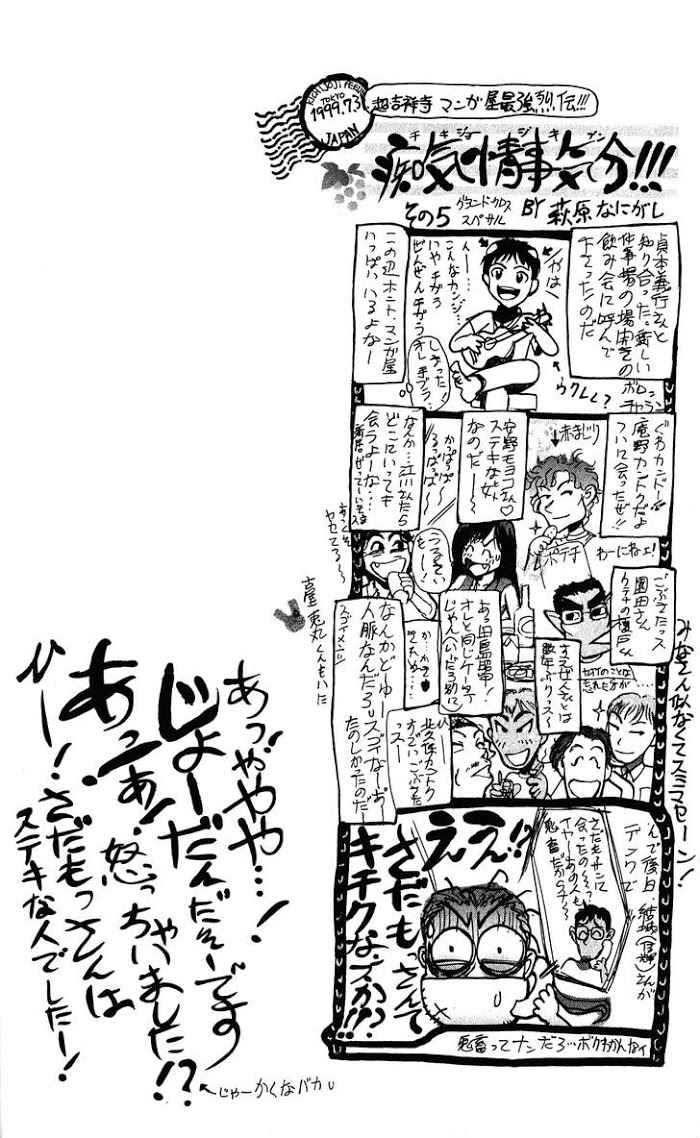 1999.7.3
TOKYO
JAPAN
超吉祥寺 マンガ屋最強烈伝!!!
チキジョージキブン
痴気情事気分!!!
その5 グランドクロス
スペサル
BY 萩原なにがし
貞本義行さんと
知り合った。新しい
仕事場の場所の
飲み会に呼んで
下さったのだ
ガは
んー
こんなカンジ…
いや チガう
ぜんぜんチガう
しまった!
オレ 手ブラ…
この辺ホント、マンガ屋
いっぱいいるよなー
ポロン
チャラン
ウクレレ?
ぐわカンドー
庵野カントクだよ
ついに会ったぜ!!
↓赤まじり
安野モヨコさん♡
ステキな女
なのだー
かっぱっぱー
るっぱっぱー
なんか…江川さんたら
どこにいっても
会うよーな…
あっくそ
ヤセてるー
うるせい
もー!
ポテチ
わーにねェ!
ごぶさたっス
園田さん
古屋兎丸くんもいた
あっ田島昭宇!
オレと同じケータイ
じゃんへい
なんかどゆー
人脈なんだろ スゴイなーあー
たのしかったのだー
スゴイメンツ
すえぜんさんとは
数年ぶりっスー
忘れた方が……
北久保カントク
オヒサごぶさた
っスー
みなさん似なくてスミマセーン!
んで後日、結城(信輝)さんが
デンワで
さだもサンに
会ったの〜?
イヤーあの人も
鬼畜だからァ〜
ええ!?
さだもっさんて
キチクなスか!!?
鬼畜ってナンだろ…ボクわかんなイ
あっややや…!
じょーだんだそーです
あっあ、怒っちゃいました!?
ひー!さだもっさんは
ステキな人でしたー!
←じゃーかくなバカ